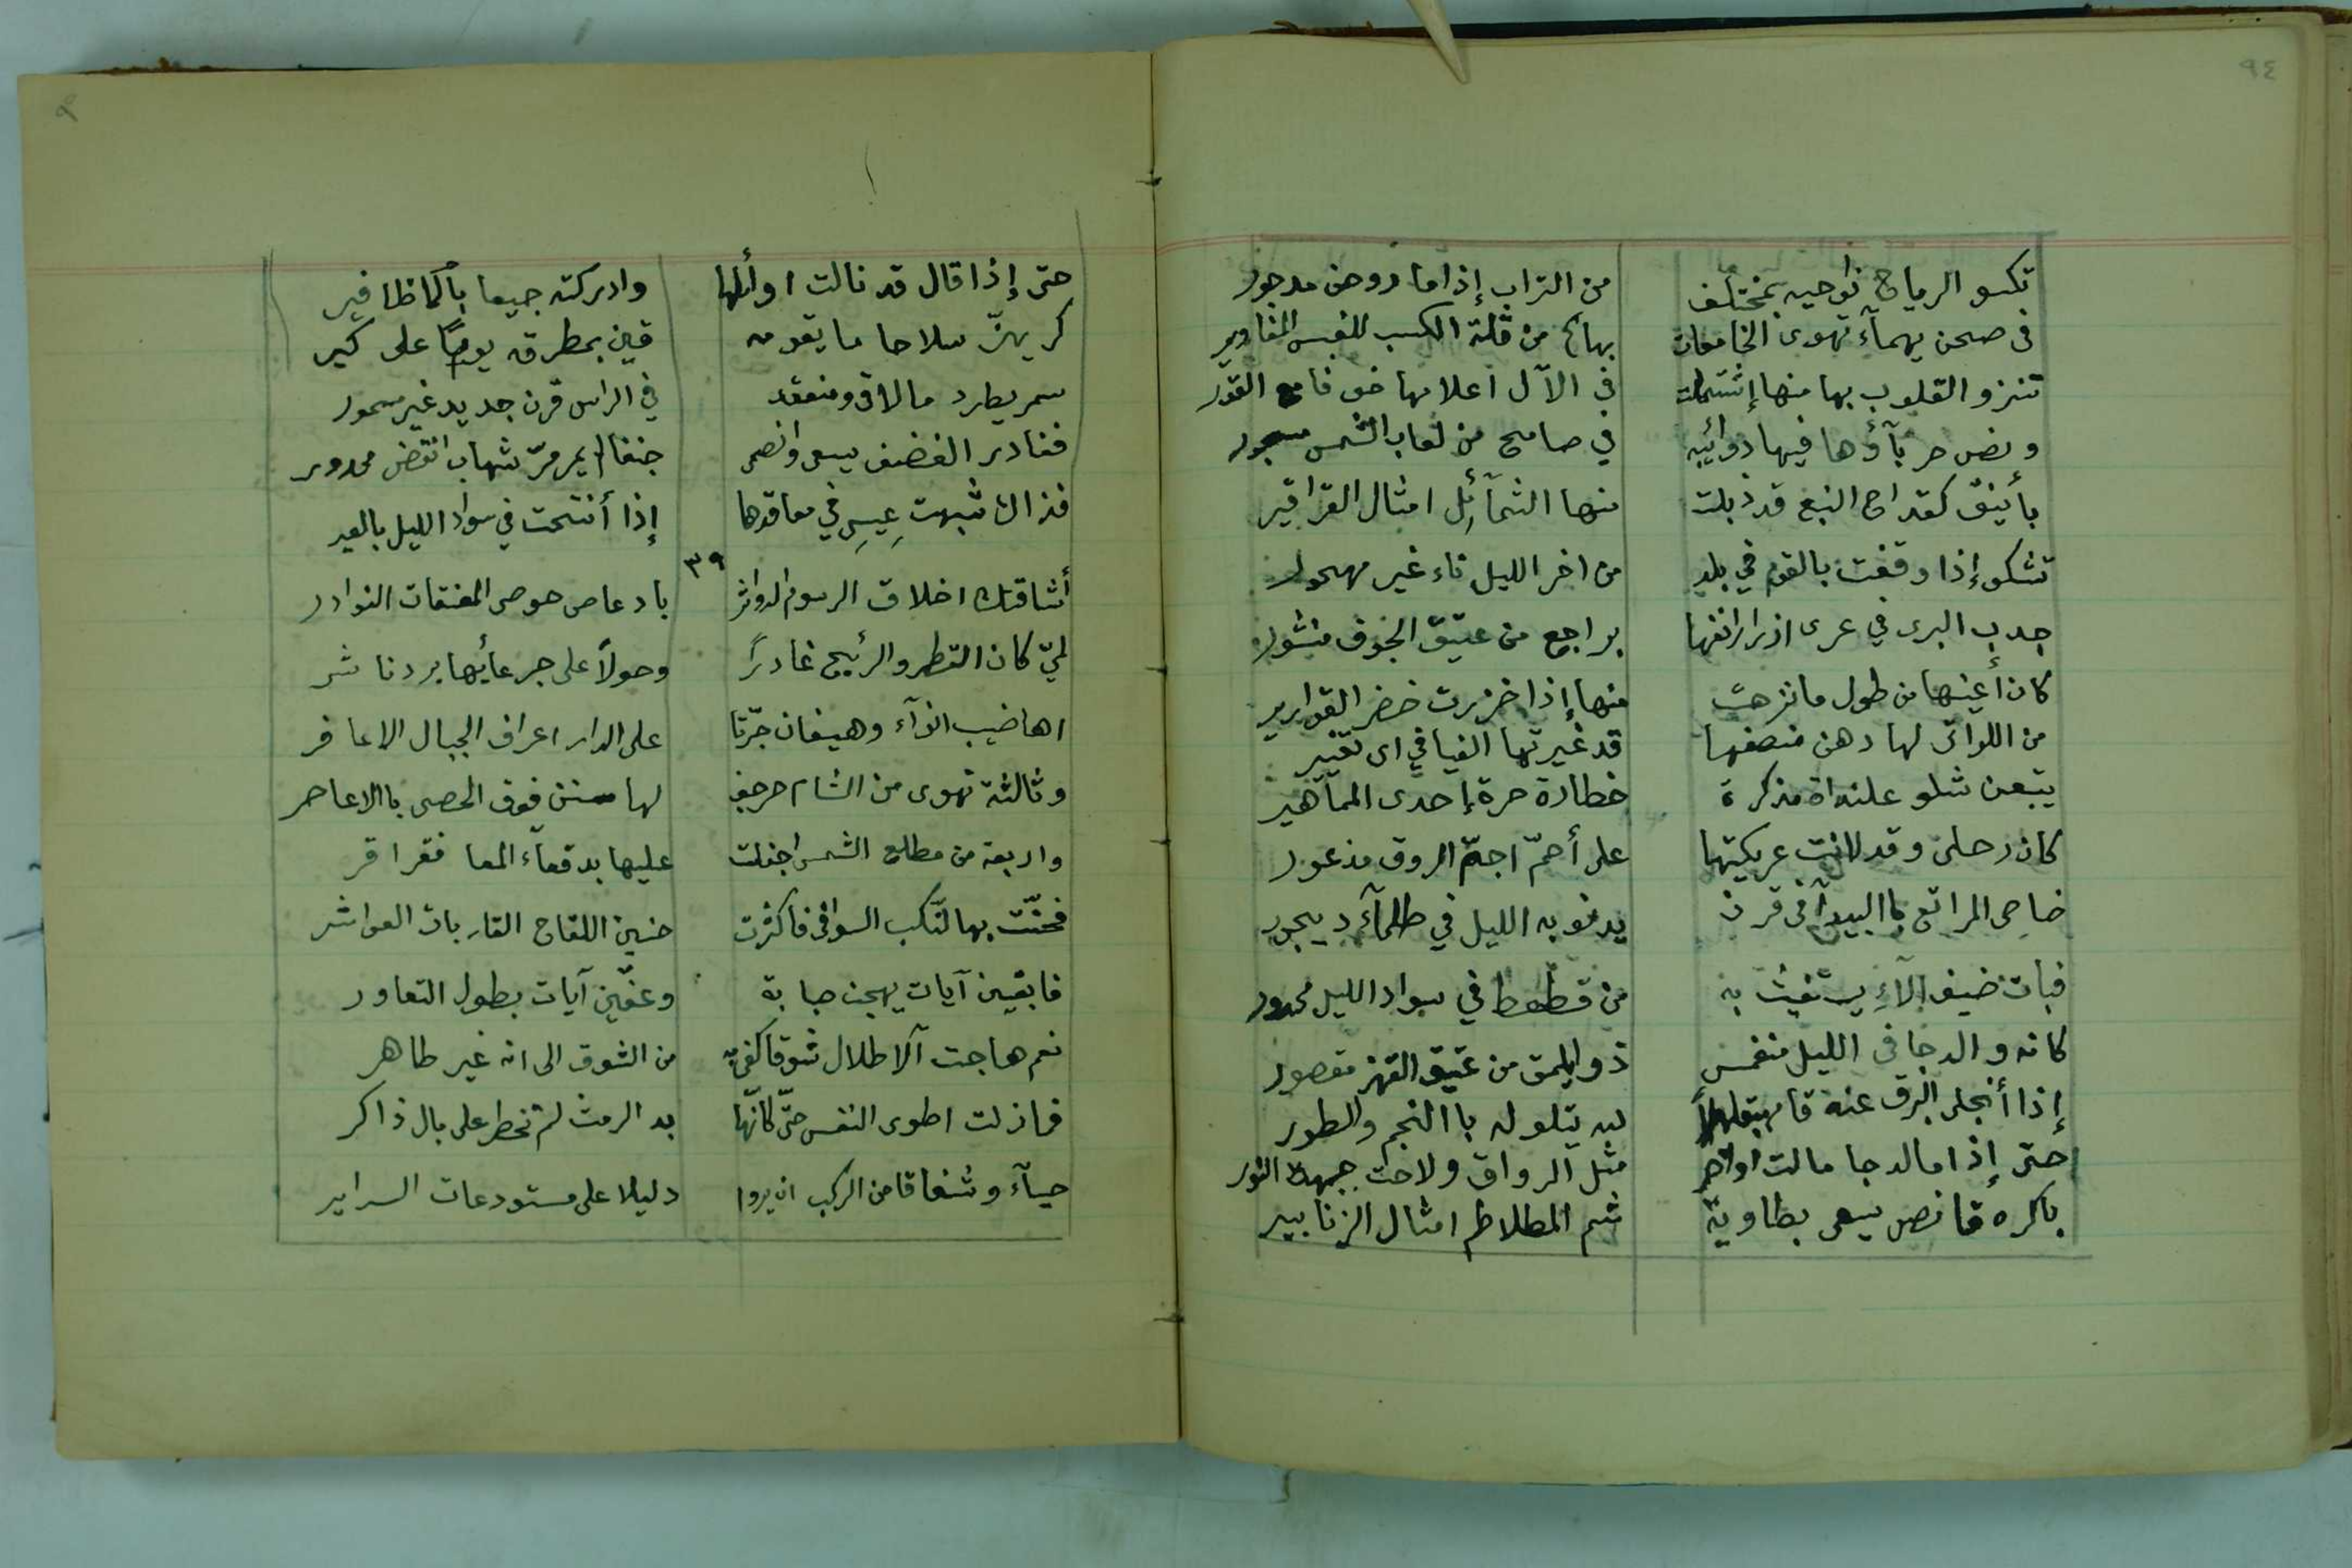 ٩٤
تكسو الرياح نواحيه بمختلف من التراب إذا ما دوحن مدجور
فى صحن يهمآء تهوى الخامعات بهائج من قلة الكسب للغبس المغاوير
تنزو القلوب بها منها إشتملت فى الآل اعلامها خوفا مع القور
ونض حربآؤها فيها ذوائبه في صامح من لعاب الشمس مسجور
بأينق كقداح النبع قد ذبلت منها الثمآئل امثال القراقير
تشكو إذا وقفت بالقوم في بلد من اخر الليل ناء غير مهجور
جدب البرى في عرى ازرار انفها براجع من عتيق الجوف منشور
كان أعينها من طول ما نزحت منها إذا خزرت خضر القوارير
من اللواتى لها دهن منصفها قد غيرتها الفيافي اى تغيير
يتبعن شلو علنداة مذكرة خطارة حرة إحدى المماهير
كان رحلى وقد لانت عريكتها على أحمّ اجمّ الروق مذعور
ضاحى المراتع باالبيدآ فى قرن يدنو به الليل في ظلمآء ديجور
فبات ضيف الآءِ يستغيث به من قطقط في سواد الليل محدور
كانه والدجا فى الليل منغمس ذو ايلمق من عتيق القهز مقصور
إذا أنجلى البرق عنه قام مبتهلاً لله يتلو له باالنجم والطور
حتى إذا ما الدجا مالت اواخر مثل الرواق ولاحت جبهة النور
باكره قانص يسعى بطاوية شم المطلاطم امثال الزنابير
حتى إذا قال قد نالت اوألها وادركته جميعا باالاظافير
كر يهزّ سلاحا ما يقومه قين بمطرقه يومًا على كير
سمر يطرد مالاقى ومنعقد في الراس قرن جديد غير مسمور
فغادر الغضف يسعى وانصمى جنفا يمر مرّ شهاب انقض محدور
فذاك شبهت عِيسِى في معاقدها إذا أنتحت في سواد الليل بالعير
٣٩
أشاقتك اخلاق الرسوم الدواثر بادعاص حوصى المعنقات النوادر
لميّ كان القطر والرئيح غادرً وحولاً على جرعأئها بردناشر
اهاضيب انوآء وهيفان جرّتا على الدار اعراف الجبال الاعافر
وثالثة تهوى من الشام حرجف لها سنن فوق الحصى باالاعاصر
واربعة من مطلع الشمس اجفلت عليها بدقعآء المعا فقراقر
فحنّت بها النّكب السوافى فأكثرت حنين اللقاح القاربات العواشر
فابقين آيات يهجن صبابة وعفّين آيات بطول التعاور
نعم هاجت آلاطلال شوقا كفىّ من الشوق الى انه غير طاهر
فمازلت اطوى النفس حتّى كانّها بد الرمث لم تخطر على بال ذاكر
حيآء وشفاقا من الركب ان يروا دليلا على مستودعات السراير